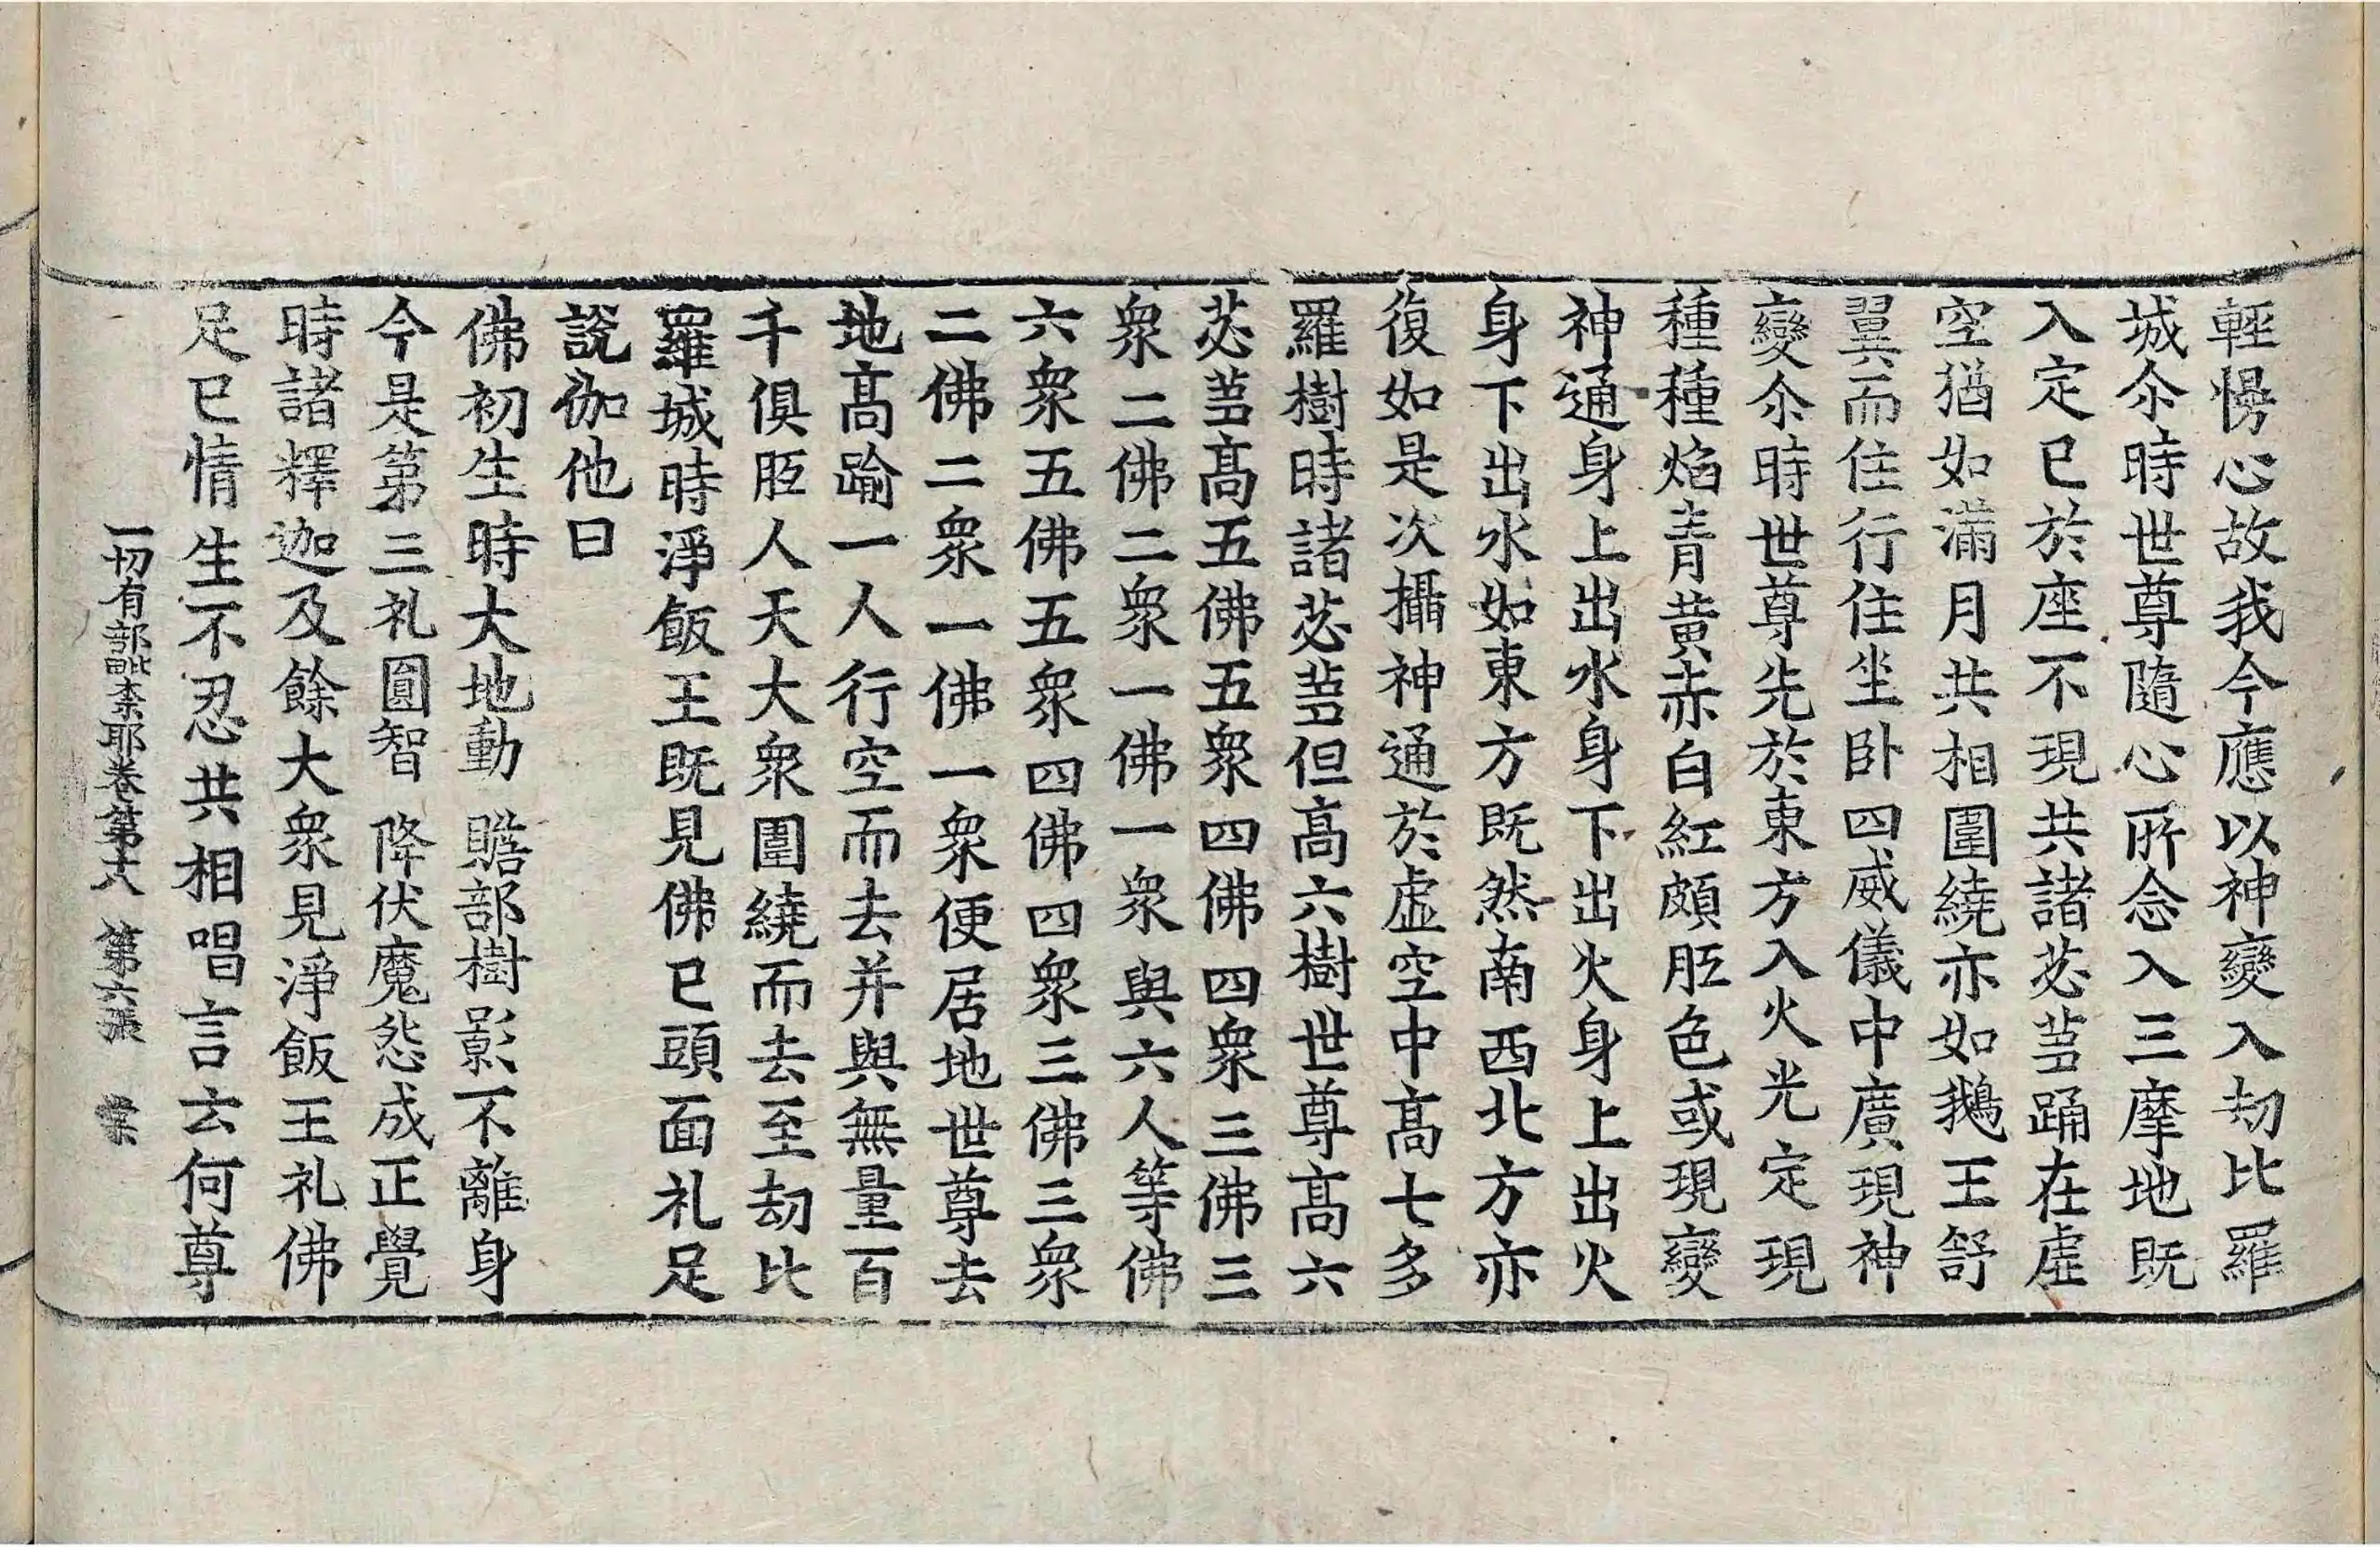 輕慢心故我今應以神變入劫比羅
城尒時世尊隨心所念入三摩地既
入定已於座不現共諸苾蒭踊在虛
空猶如滿月共相圍繞亦如鵝王舒
翼而住行住坐卧四威儀中廣現神
變尒時世尊先於東方入火光定現
種種焰青黃赤白紅頗胝色或現變
神通身上出水身下出火身上出火
身下出水如東方既然南西北方亦
復如是次攝神通於虛空中高七多
羅樹時諸苾蒭但高六樹世尊高六
苾蒭高五佛五衆四佛四衆三佛三
衆二佛二衆一佛一衆與六人等佛
六衆五佛五衆四佛四衆三佛三衆
二佛二衆一佛一衆便居地世尊去
地高踰一人行空而去并與無量百
千俱胝人天大衆圍繞而去至劫比
羅城時淨飯王既見佛已頭面礼足
說伽他曰
佛初生時大地動　贍部樹影不離身
今是第三礼圓智　降伏魔怨成正覺
時諸釋迦及餘大衆見淨飯王礼佛
足已情生不忍共相唱言云何尊
一切有部毗柰耶卷第十八　第六張